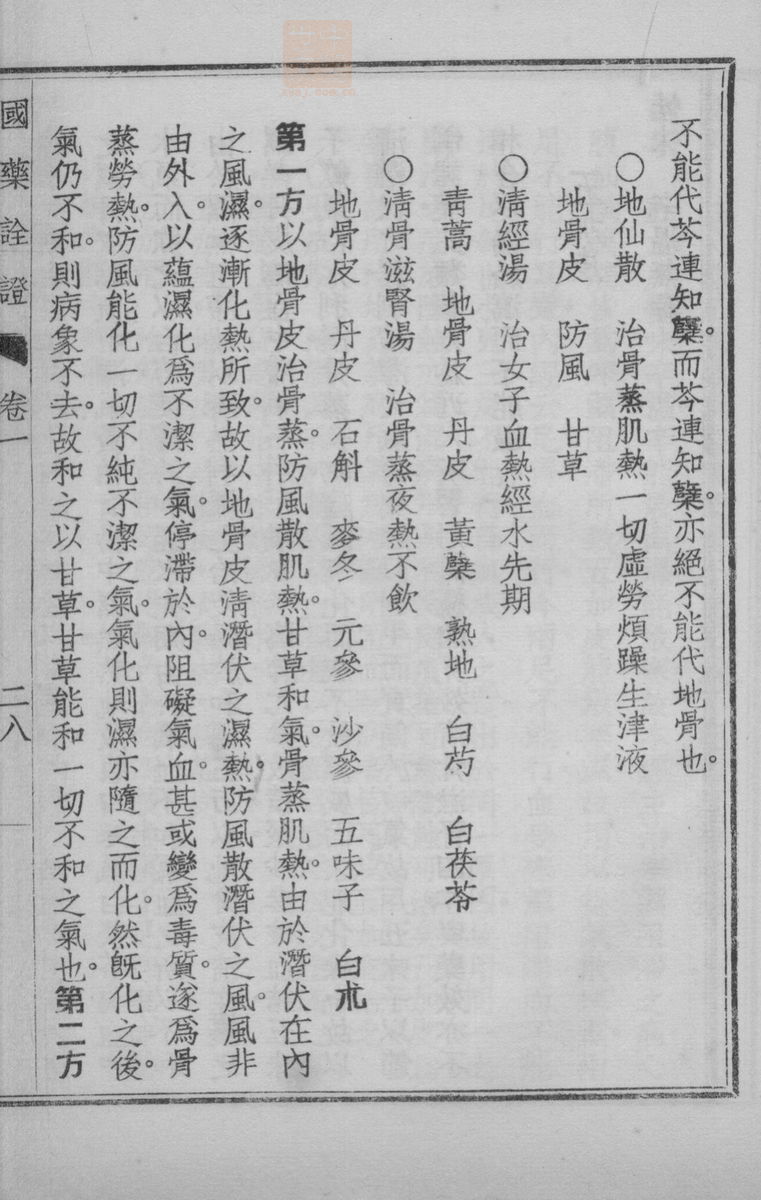 不能代芩連知蘗。而芩連知蘗。亦絕不能代地骨也。
〇地仙散　治骨蒸肌熱一切虛勞煩躁生津液
地骨皮　防風　甘草
〇清經湯　治女子血熱經水先期
青蒿　地骨皮　丹皮　黃蘗　熟地　白芍　白茯苓
〇清骨滋腎湯　治骨蒸夜熱不飲
地骨皮　丹皮　石斛　麥冬　元參　沙參　五味子　白朮
第一方以地骨皮治骨蒸。防風散肌熱。甘草和氣。骨蒸肌熱。由於潛伏在內
之風濕。逐漸化熱所致。故以地骨皮清潛伏之濕熱。防風散潛伏之風。風非
由外入。以蘊濕化爲不潔之氣。停滯於內。阻礙氣血。甚或變爲毒質。遂爲骨
蒸勞熱。防風能化一切不純不潔之氣。氣化則濕亦隨之而化。然旣化之後。
氣仍不和。則病象不去。故和之以甘草。甘草能和一切不和之氣也。第二方
國藥詮證　卷一　二八